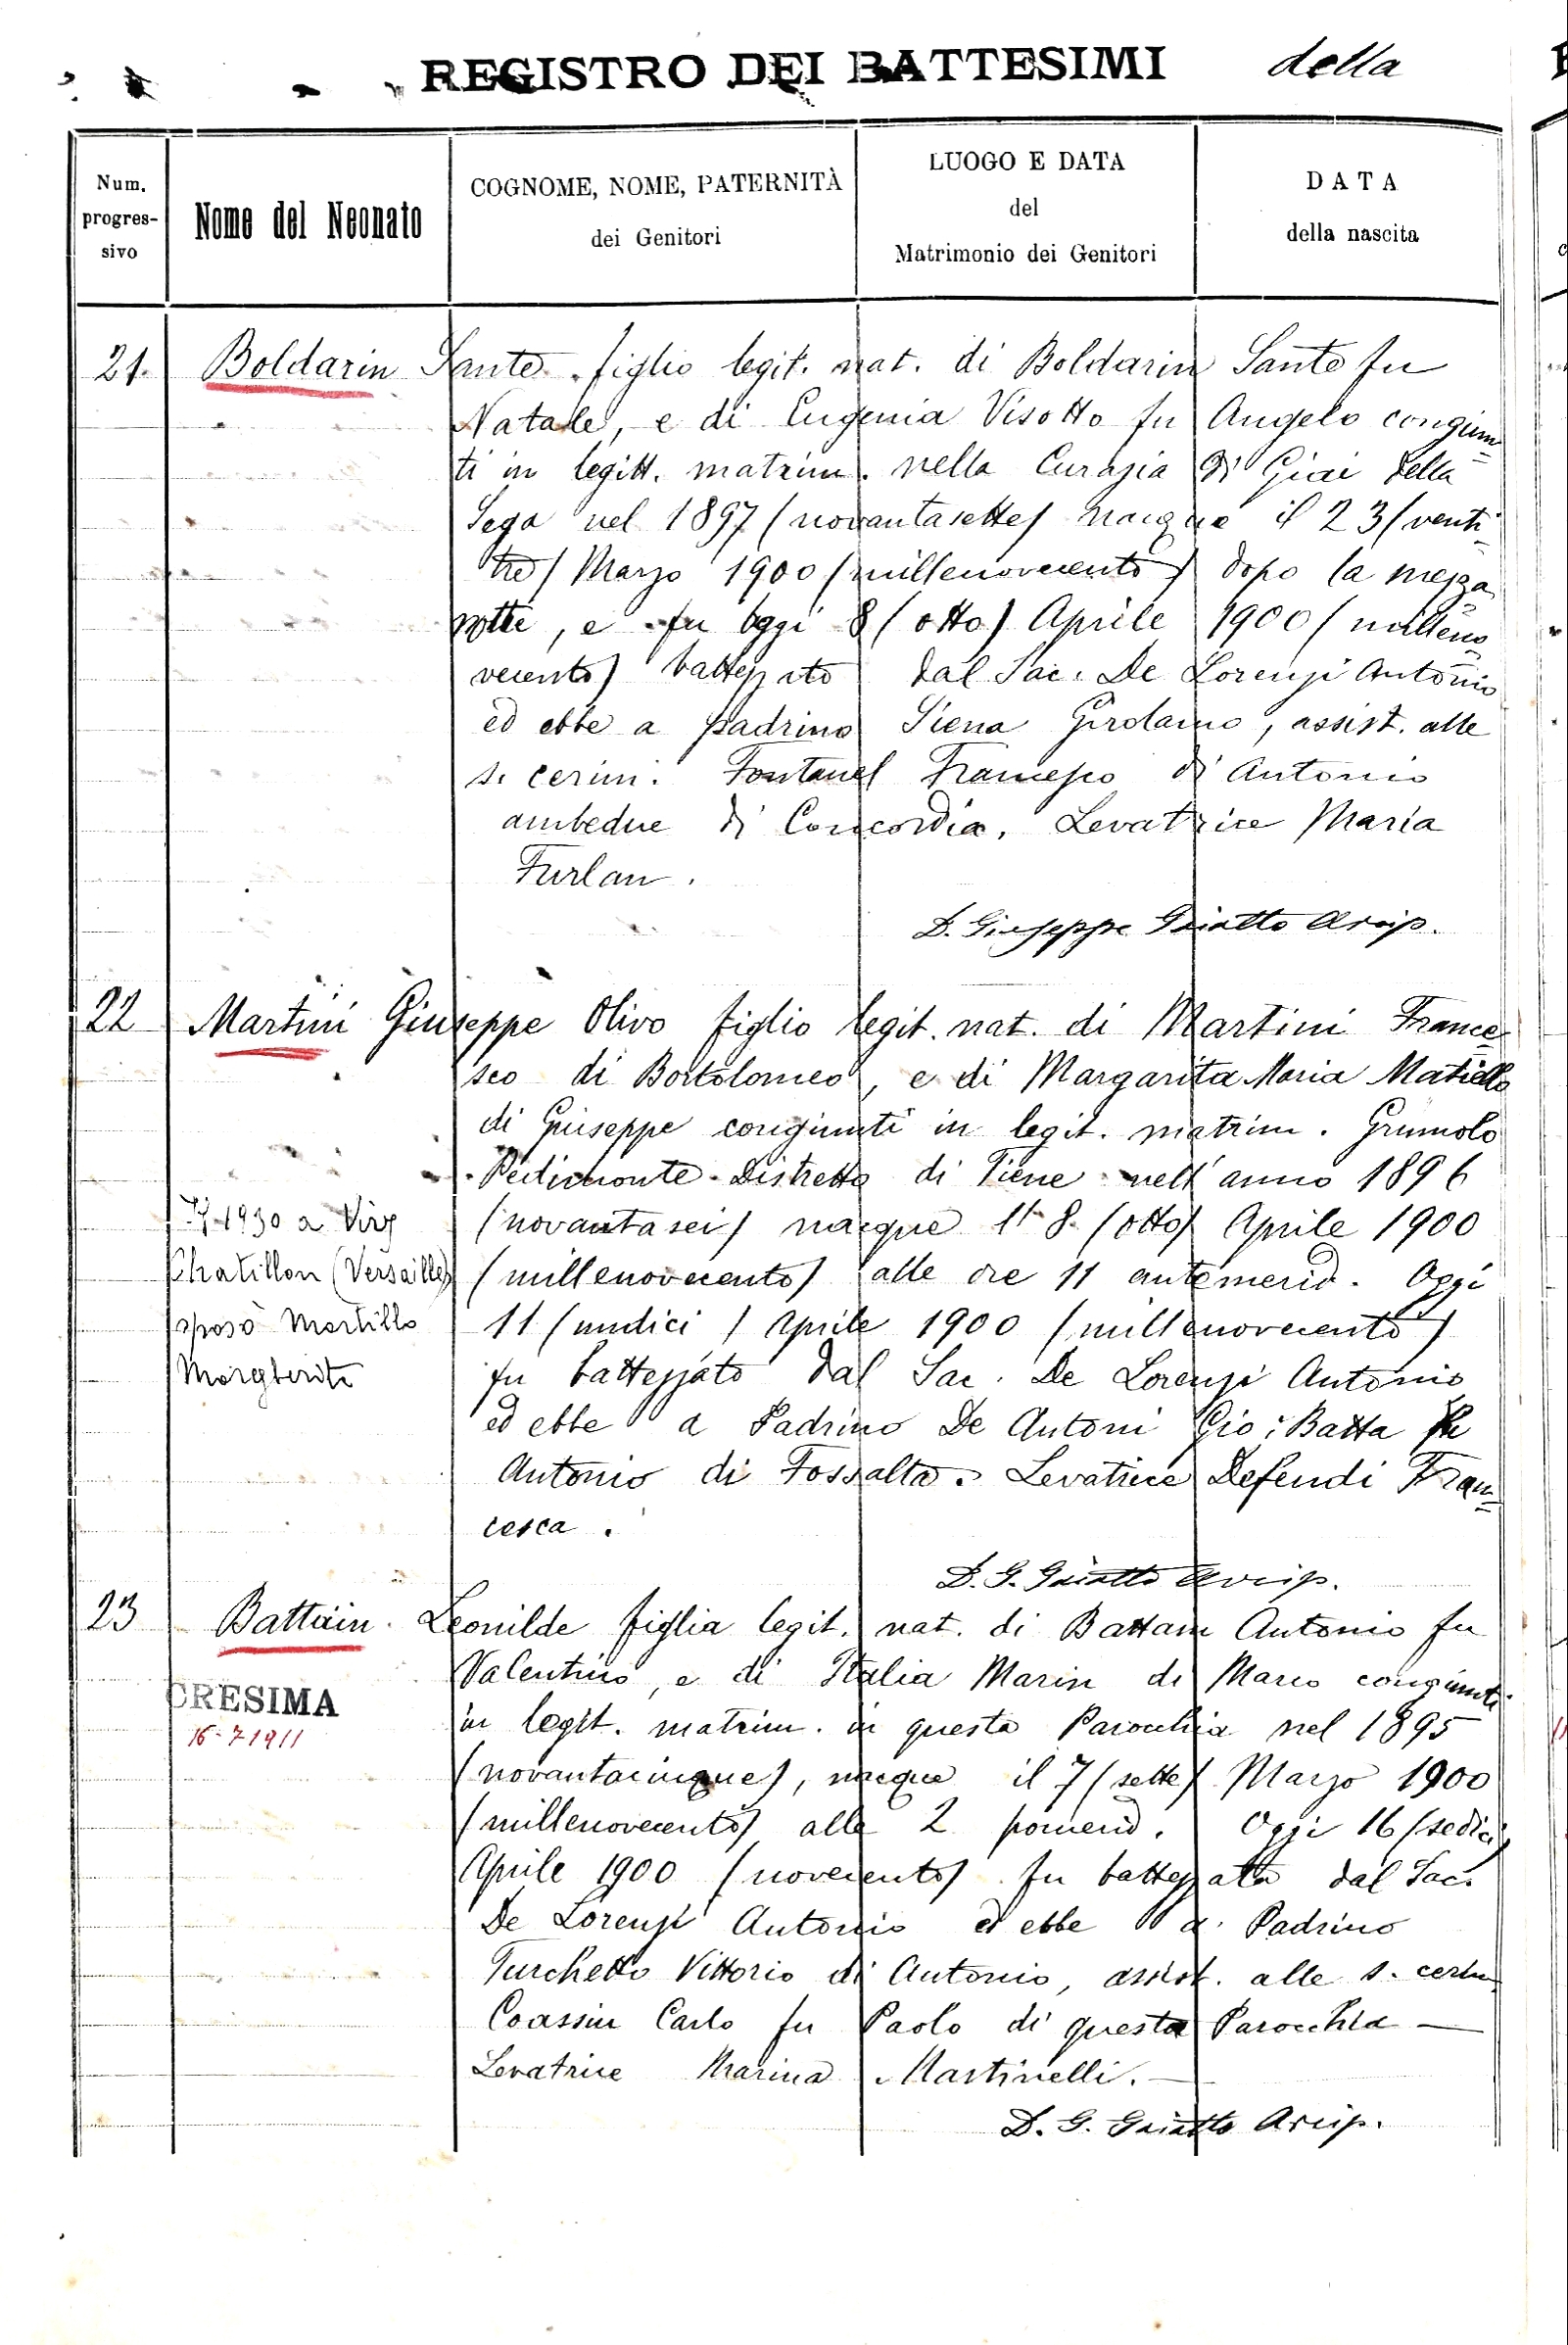 REGISTRO DEI BATTESIMI della
Num. progres- sivo
Nome del Neonato
COGNOME, NOME, PATERNITÀ
dei Genitori
LUOGO E DATA
del
Matrimonio dei Genitori
DATA
della nascita
21. Boldarin Sante figlio legit. nat. di Boldarin Sante fu
Natale, e di Eugenia Visotto fu Angelo congiun
ti in legitt. matrim. nella Curazia di Giai della
Sega nel 1897 (novantasette) nacque il 23 (venti
tre) Marzo 1900 (millenovecento) dopo la mezza
notte, e fu oggi 8 (otto) Aprile 1900 (milleno
vecento) battezzato dal Sac. De Lorenzi Antonio
ed ebbe a padrino Siena Girolamo, assist. alle
s. cerim. Fontanel Francesco di Antonio
ambedue di Concordia. Levatrice Maria
Furlan.
D. Giuseppe Arcip.
22 Martini Giuseppe Olivo figlio legit. nat. di Martini France
sco di Bortolomeo, e di Margarita Maria Matiello
di Giuseppe congiunti in legit. matrim. Grumolo
Pedimonte - Distretto di Tiene nell'anno 1896
(novantasei) nacque l' 8. (otto) Aprile 1900
(millenovecento) alle ore 11 antemerid. Oggi
11 (undici) Aprile 1900 (millenovecento)
fu battezzato dal Sac. De Lorenzi Antonio
ed ebbe a Padrino De Antoni Gio: Batta fu
Antonio di Fossalta. Levatrice Defendi Fran
cesca.
1930 a Viry
Chatillon (Versailles)
sposò Martillo
Margherita
D. G. Arcip.
23 Battain. Leonilde figlia legit. nat. di Battain Antonio fu
Valentino, e di Italia Marin di Marco congiunti
in legit. matrim. in questa Parocchia nel 1895
(novantacinque), nacque il 7 (sette) Marzo 1900
(millenovecento) alle 2 pomerid. Oggi 16 (sedici)
Aprile 1900 (novecento) fu battezzata dal Sac.
De Lorenzi Antonio ed ebbe a Padrino
Turchetto Vittorio di Antonio, assist. alle s. cerim
Coassin Carlo fu Paolo di questa Parocchia —
Levatrice Marina Martinelli. —
CRESIMA
16-7-1911
D. G. Arcip.